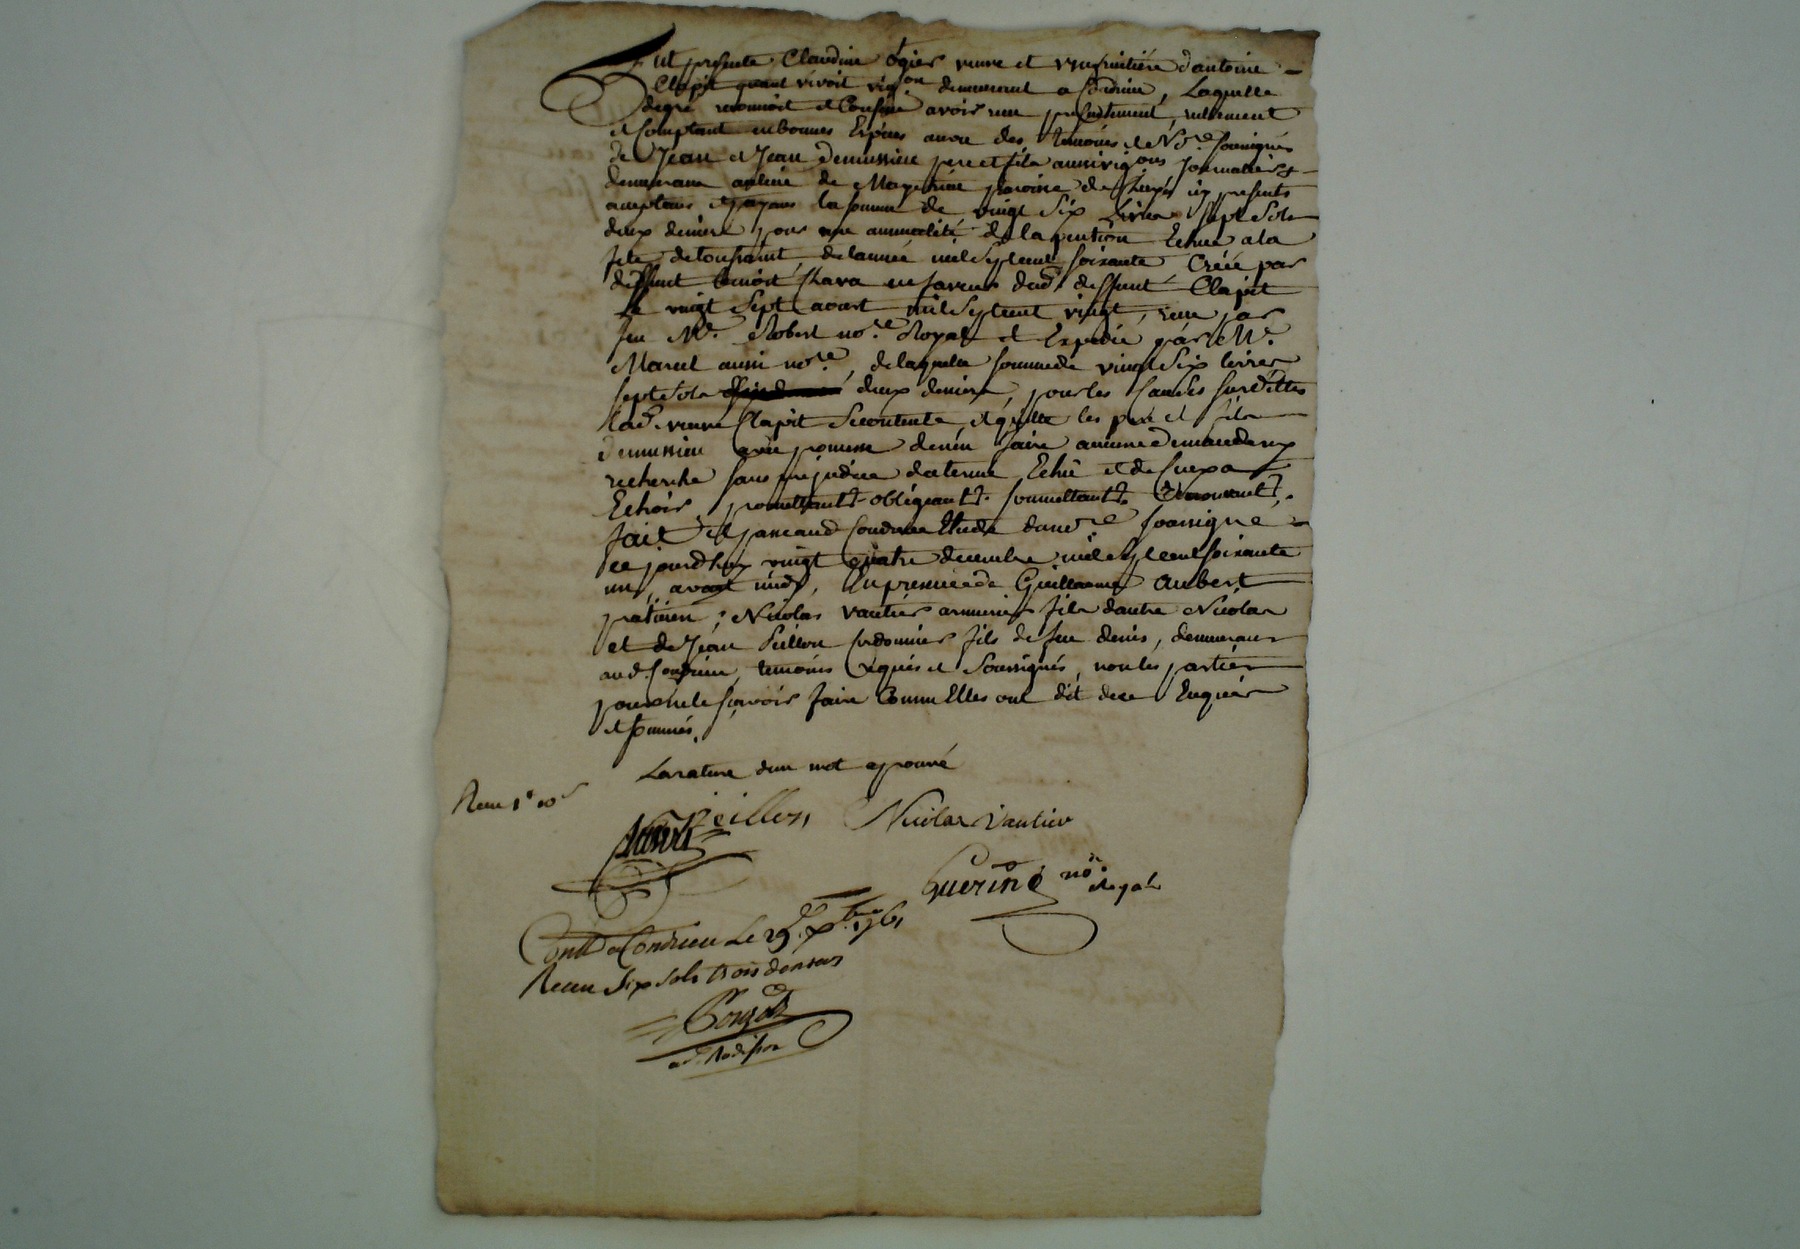 Fut presente Claudine Ogier veuve et usufruitiére dantoine
Clapit quant vivoit vigon demeurant a Condrieu, Laquelle
degré reconnoit et Confesse avoir reçu presentement, reellement
et Comptant en bonnes Espèces au vu des temoins et Nore. soussignés
de Jean et Jean Demussieu pere et fils aussi vigons journaliers
demeurans au lieu de paroisse de icy presents
acceptans et payans la somme de vingt Six Livres Sept Sols
deux deniers pour une annualité de la pention Echue a la
fete de toussaint de lannée mil Sept cent soixante Créée par
deffunt benoit en faveur dud. deffunt Clapit
le vingt Sept aoust mil Sept cent vingt, reçue par
feu Me. Robert nore. Royal et Expediée par Me.
aussi nore. de laquelle somme de vingt Six livres
Sept Sols deux deniers, pour les Causes susdittes
lad. veuve Clapit Se contente et quitte les pere et fils
Demussieu avec promesse de nen faire aucune demande ny
recherche sans prejudice du terme Echû et de Ceux a
Echoir, promettant. obligeant. soumettant. Renonçant.
fait et passé aud Condrieu Etude dud nore. soussigné
ce jourdhuy vingt quatre decembre mil Sept cent soixante
un, avant midy, En presence de Guillaume Aubert
praticien, Nicolas Vautier armurier fils dautre Nicolas
et de Jean Peillon Cordonnier fils de feu denis, demeurans
aud. Condrieu, temoins requis et Soussignés, non les parties
pour ne le sçavoir faire Comme Elles ont dit de ce Enquises
et sommées.
La rature dun mot aprouvé
Reçu
Aubert Peillon Nicolas Vautier
Guerin nore. Royal
Contlé a Condrieu Le 29. Xbre 1761
Reçu Six sols trois deniers